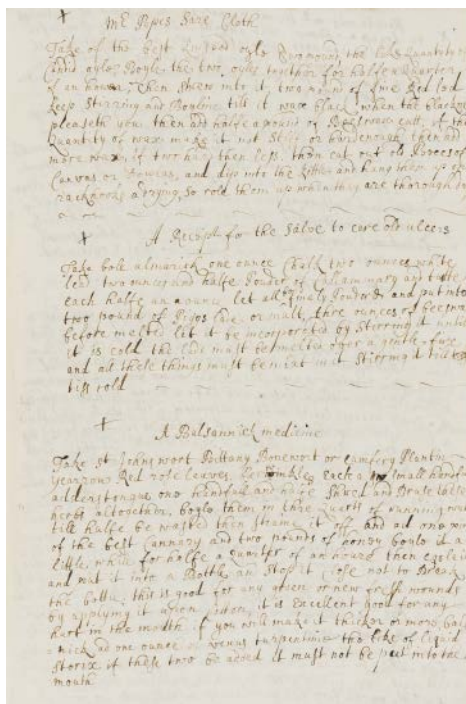 Mr Popes Sare Cloth
Take of the best oyle two pound the like Quantity of
oyle, Boyle the two oyles together for halfe a Quarter
of an houre, then strew into it, two pound of fine Red lod
keep Stirring and Boyling till it wax black, when the blacknes
pleaseth you, then ad halfe a pound of Beeswax cutt, if the
Quantity of wax make it not Stiff or hard enough then add
more wax, if two hard then less, then cut out old Peeces of
Canvas or, and dip into the and hang them up on
a drying, So rold them up when they are thorough
A Recept for the Salve to cure old ulcers
Take bole almarick one ounce Chalk two ounces white
led two ounces and halfe Powder of and
each halfe an ounce let all be finely Powdrd and put into
two pound of or, three ounces of beeswax
before melted let it be incorporated by Stirring it untill
it is cold the must be melted over a gentle fire
and all these things must be Stirring it till
tiss cold
A Balsamick medicine
Take St Johns wort Bonewort or Cumfery Plantin
yearrow Red rose leaves, each a small handfull
adderstongue one handfull and halfe Shred and Bruse these
herbs altogether, boyle them in three Quarts of running water
till halfe be wasted then straine it off, and ad one
of the best Cannary and two pounds of honey boyle it a
little while for halfe a Quarter of an houre then
and put it into a Bottle, and Stop it close not to Break
the bottle, this is good for any green or new fresh wounds
by applying it upon, it is Excellent good for any
hurt in the mouth if you will make it thicker or more
ad one ounce of venus turpentine the like of liquid
Storix if these two be aded it must not be put into the
mouth